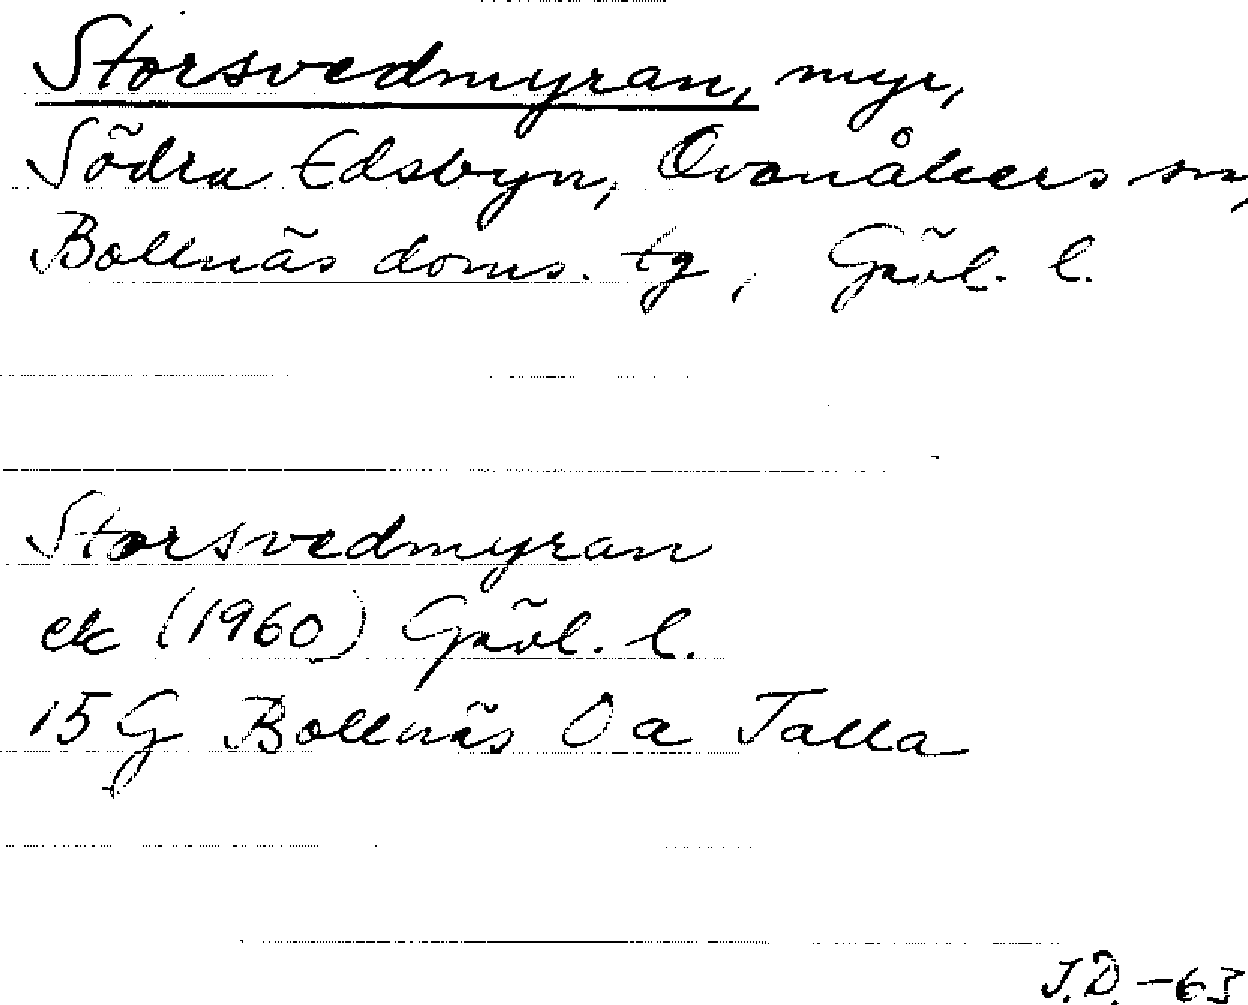 Storsvedmyran, myr,
Södra Edsbyn, Ovanåkers sn,
Bollnäs doms. tg, Gävl. l.
Storsvedmyran
ek (1960) Gävl. l.
15 G Bollnäs O a Talla
J.D. -63